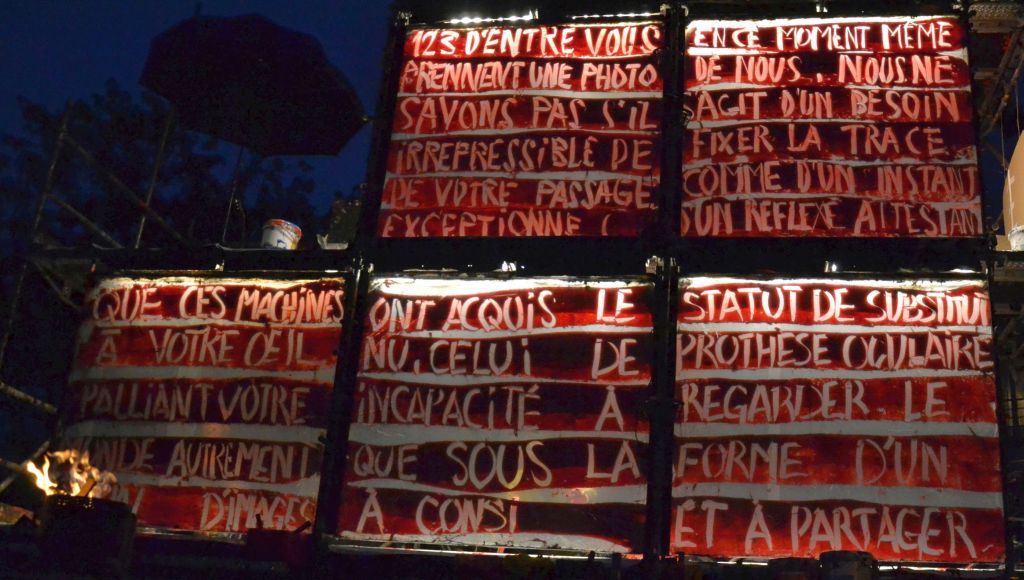 123 D'ENTRE VOUS EN CE MOMENT MÊME
PRENNENT UNE PHOTO DE NOUS. NOUS NE
SAVONS PAS S'IL S'AGIT D'UN BESOIN
IRREPRESSIBLE DE FIXER LA TRACE
DE VOTRE PASSAGE COMME D'UN INSTANT
D'UN REFLEXE ATTESTANT
QUE CES MACHINES ONT ACQUIS LE STATUT DE SUBSTITUT
À VOTRE ŒIL NU, CELUI DE PROTHÈSE OCULAIRE
PALLIANT VOTRE INCAPACITÉ À REGARDER LE
AUTREMENT QUE SOUS LA FORME D'UN
D'IMAGES À ET À PARTAGER.